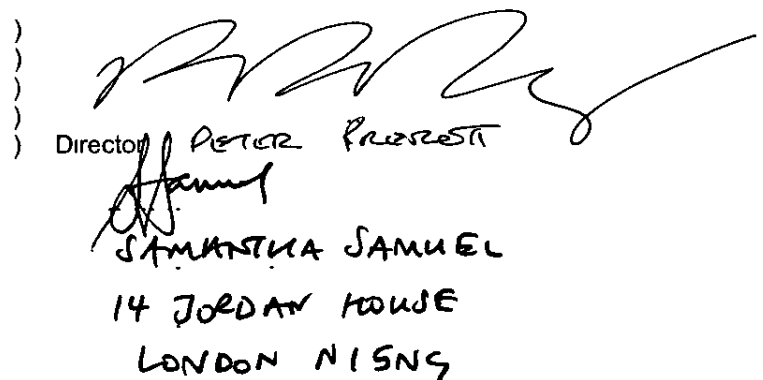 )
)
)
)
) Director PETER
SAMANTHA SAMUEL
14 JORDAN HOUSE
LONDON N1 5NG